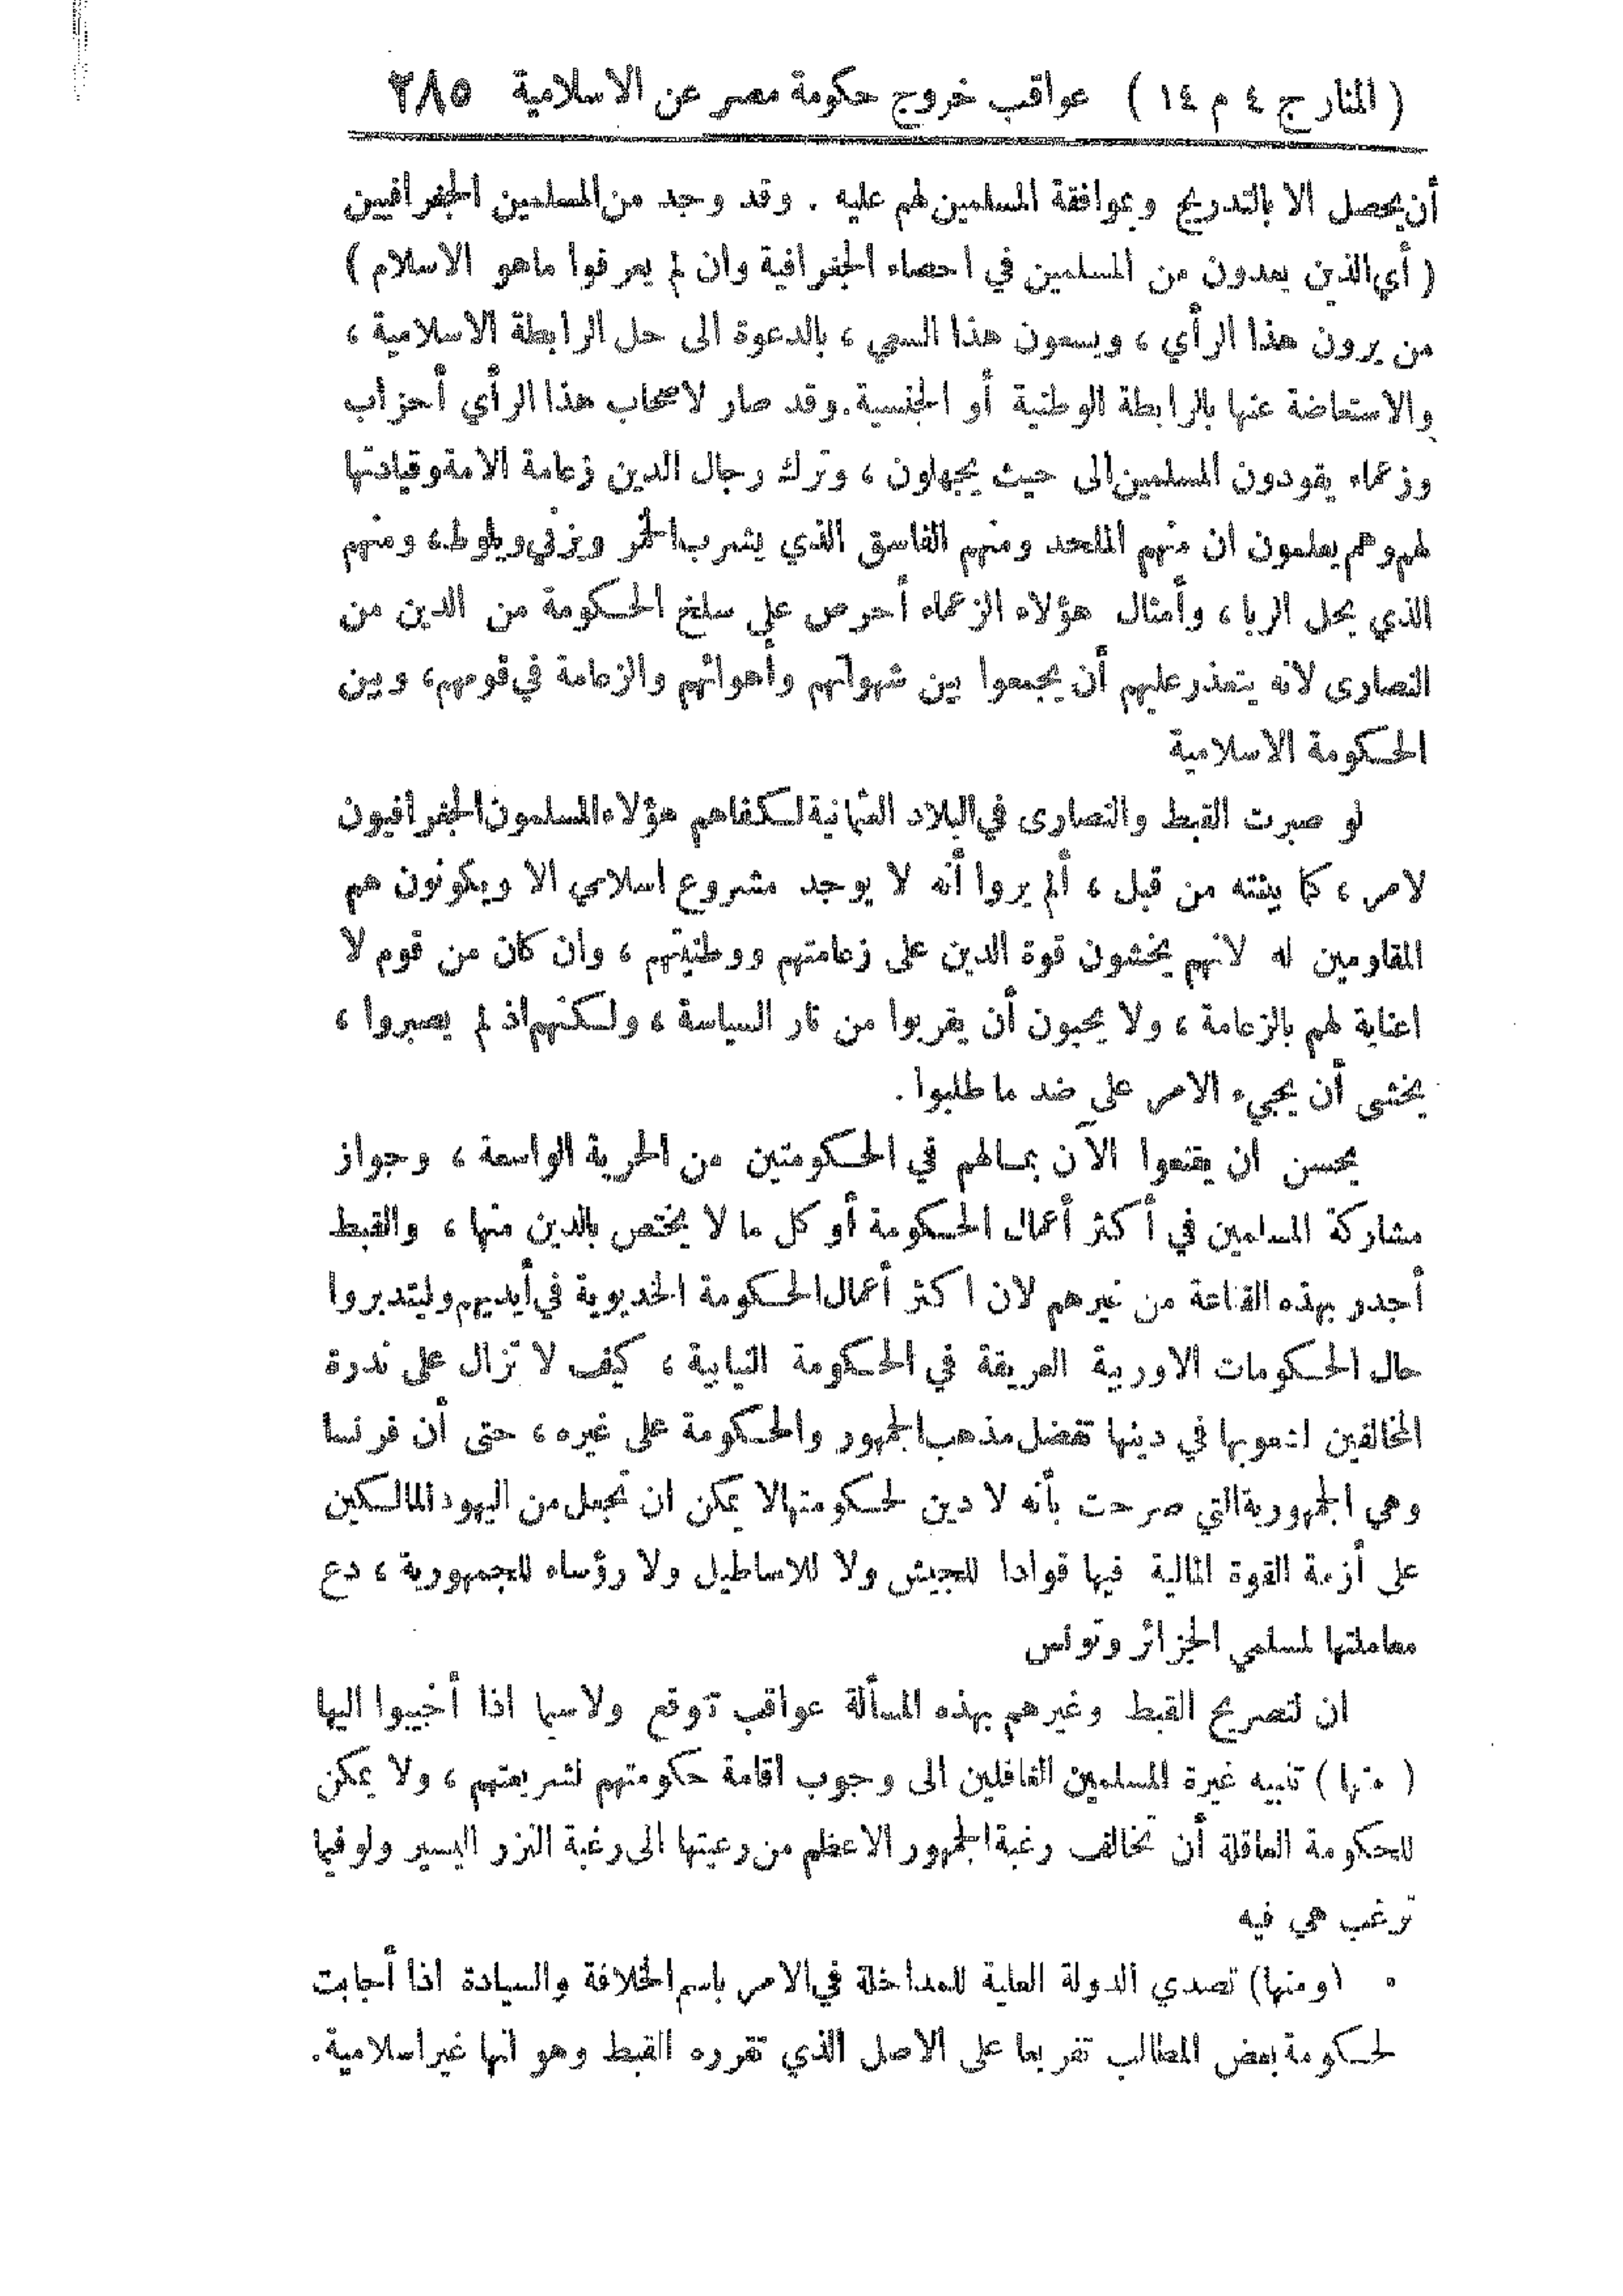 ( المنار ج ٤ م ١٤ ) عواقب خروج حكومة مصر عن الاسلامية ٢٨٥
أن يحصل الا بالتدريج وبموافقة المسلمين لهم عليه . وقد وجد من المسلمين الجغرافيين
( أي الذين يعدون من المسلمين في احصاء الجغرافية وان لم يعرفوا ماهو الاسلام )
من يرون هذا الرأي ، ويسعون هذا السعي ، بالدعوة الى حل الرابطة الاسلامية ،
والاستعاضة عنها بالرابطة الوطنية أو الجنسية . وقد صار لاصحاب هذا الرأي أحزاب
وزعماء يقودون المسلمين الى حيث يجهلون ، وترك رجال الدين زعامة الامة وقيادتها
لهم وهم يعلمون ان منهم الملحد ومنهم الفاسق الذي يشرب الخمر ويزني ويلوط ، ومنهم
الذي يحل الربا ، وأمثال هؤلاء الزعماء أحرص على سلخ الحكومة من الدين من
النصارى لانه يتعذر عليهم أن يجمعوا بين شهواتهم وأهوائهم والزعامة في قومهم ، وبين
الحكومة الاسلامية
لو صبرت القبط والنصارى في البلاد العثمانية لكفاهم هؤلاء المسلمون الجغرافيون
لامر ، كما بينته من قبل ، ألم يروا أنه لا يوجد مشروع اسلامي الا ويكونون هم
المقاومين له لانهم يخشون قوة الدين على زعامتهم ووطنيتهم ، وان كان من قوم لا
اعناية لهم بالزعامة ، ولا يحبون أن يقربوا من نار السياسة ، ولكنهم اذ لم يصبروا ،
يخشى أن يجيء الامر على ضد ما طلبوا .
يحسن ان يقنعوا الآن بمالهم في الحكومتين من الحرية الواسعة ، وجواز
مشاركة المسلمين في أكثر أعمال الحكومة أو كل ما لا يختص بالدين منها ، والقبط
أجدر بهذه القناعة من غيرهم لان اكثر أعمال الحكومة الخديوية في أيديهم وليتدبروا
حال الحكومات الاوربية العريقة في الحكومة النيابية ، كيف لا تزال على ندرة
المخالفين لشعوبها في دينها تفضل مذهب الجمهور والحكومة على غيره ، حتى أن فرنسا
وهي الجمهورية التي صرحت بأنه لا دين لحكومتها لا يمكن ان تجعل من اليهود المالكين
على أزمة القوة المالية فيها قوادا للجيش ولا للاساطيل ولا رؤساء للجمهورية ، دع
معاملتها لمسلمي الجزائر وتونس
ان لتصريح القبط وغيرهم بهذه المسألة عواقب تتوقع ولاسيما اذا أجيبوا اليها
( منها ) تنبيه غيرة المسلمين الغافلين الى وجوب اقامة حكومتهم لشريعتهم ، ولا يمكن
للحكومة العاقلة أن تخالف رغبة الجمهور الاعظم من رعيتها الى رغبة النزر اليسير ولو فيما
ترغب هي فيه
( ومنها ) تصدي الدولة العلية للمداخلة في الامر باسم الخلافة والسيادة اذا أجابت
لحكومة بعض المطالب تفريعا على الاصل الذي تقرره القبط وهو انها غير اسلامية .